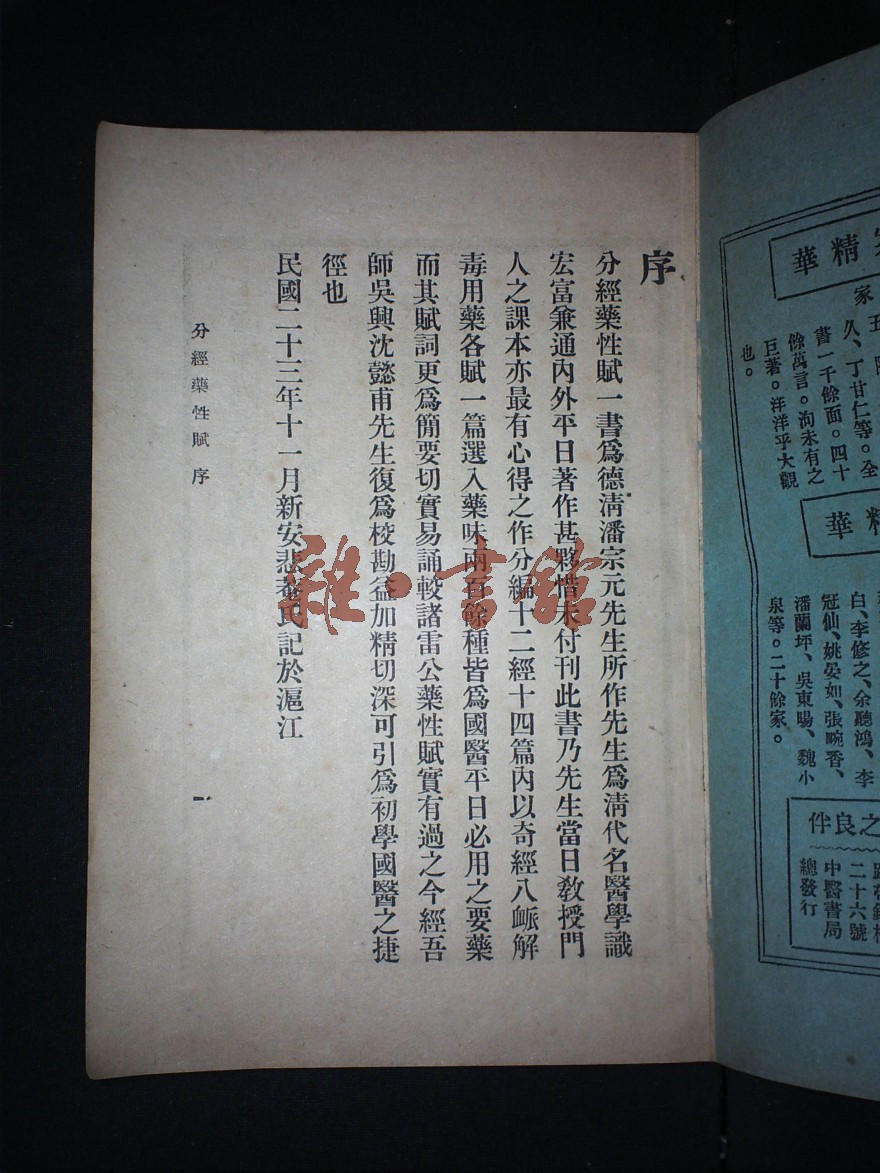 序
分經藥性賦一書爲德淸潘宗元先生所作先生爲淸代名醫學識
宏富兼通內外平日著作甚夥惜未付刊此書乃先生當日敎授門
人之課本亦最有心得之作分編十二經十四篇內以奇經八衇解
毒用藥各賦一篇選入藥味兩百餘種皆爲國醫平日必用之要藥
而其賦詞更爲簡要切實易誦較諸雷公藥性賦實有過之今經吾
師吳興沈懿甫先生復爲校勘益加精切深可引爲初學國醫之捷
徑也
民國二十三年十一月新安悲菴氏記於滬江
分經藥性賦 序
一
雜·書館
精華
家
久、丁甘仁等。全
書一千餘面。四十
餘萬言。洵未有之
巨著。洋洋乎大觀
也。
精華
白、李修之、余聽鴻、李
冠仙、姚晏如、張畹香、
潘蘭坪、吳東暘、魏小
泉等。二十餘家。
之良伴
二十六號
中醫書局
總發行